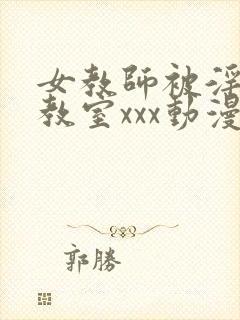 女教師被淫
教室xxx動漫
郭勝